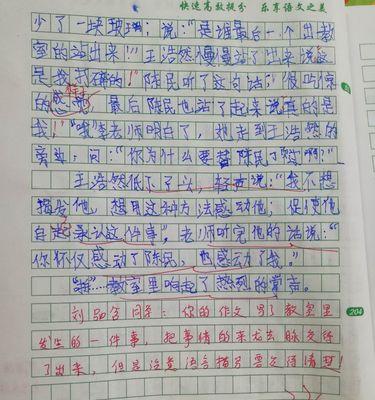 快速高效提分 乐享语文之美
少了一块玻璃；说："是谁最后一个出教
室的站出来！"王浩然慢慢站了出来说
是我打碎的！"陈民听了这句话，
的感觉 最后陈民也站了起来说真的是
我！"哦！"李老师明白了，走到王浩然的
旁边，问："你为什么要替陈民了
王浩然低下了头，轻声说："我不想
揭发他，想用这种方法感动他；促使他
自己承认这件事"。老师听完他的话说："
你不仅感动了陈民，也感动了我。"
"哗"…教室里响起了热烈的掌声。
同学：你的作文写了教室里
发生的一件事，把事情的来龙去脉交待
了出来，但是注意语言描写要交待清楚！
204